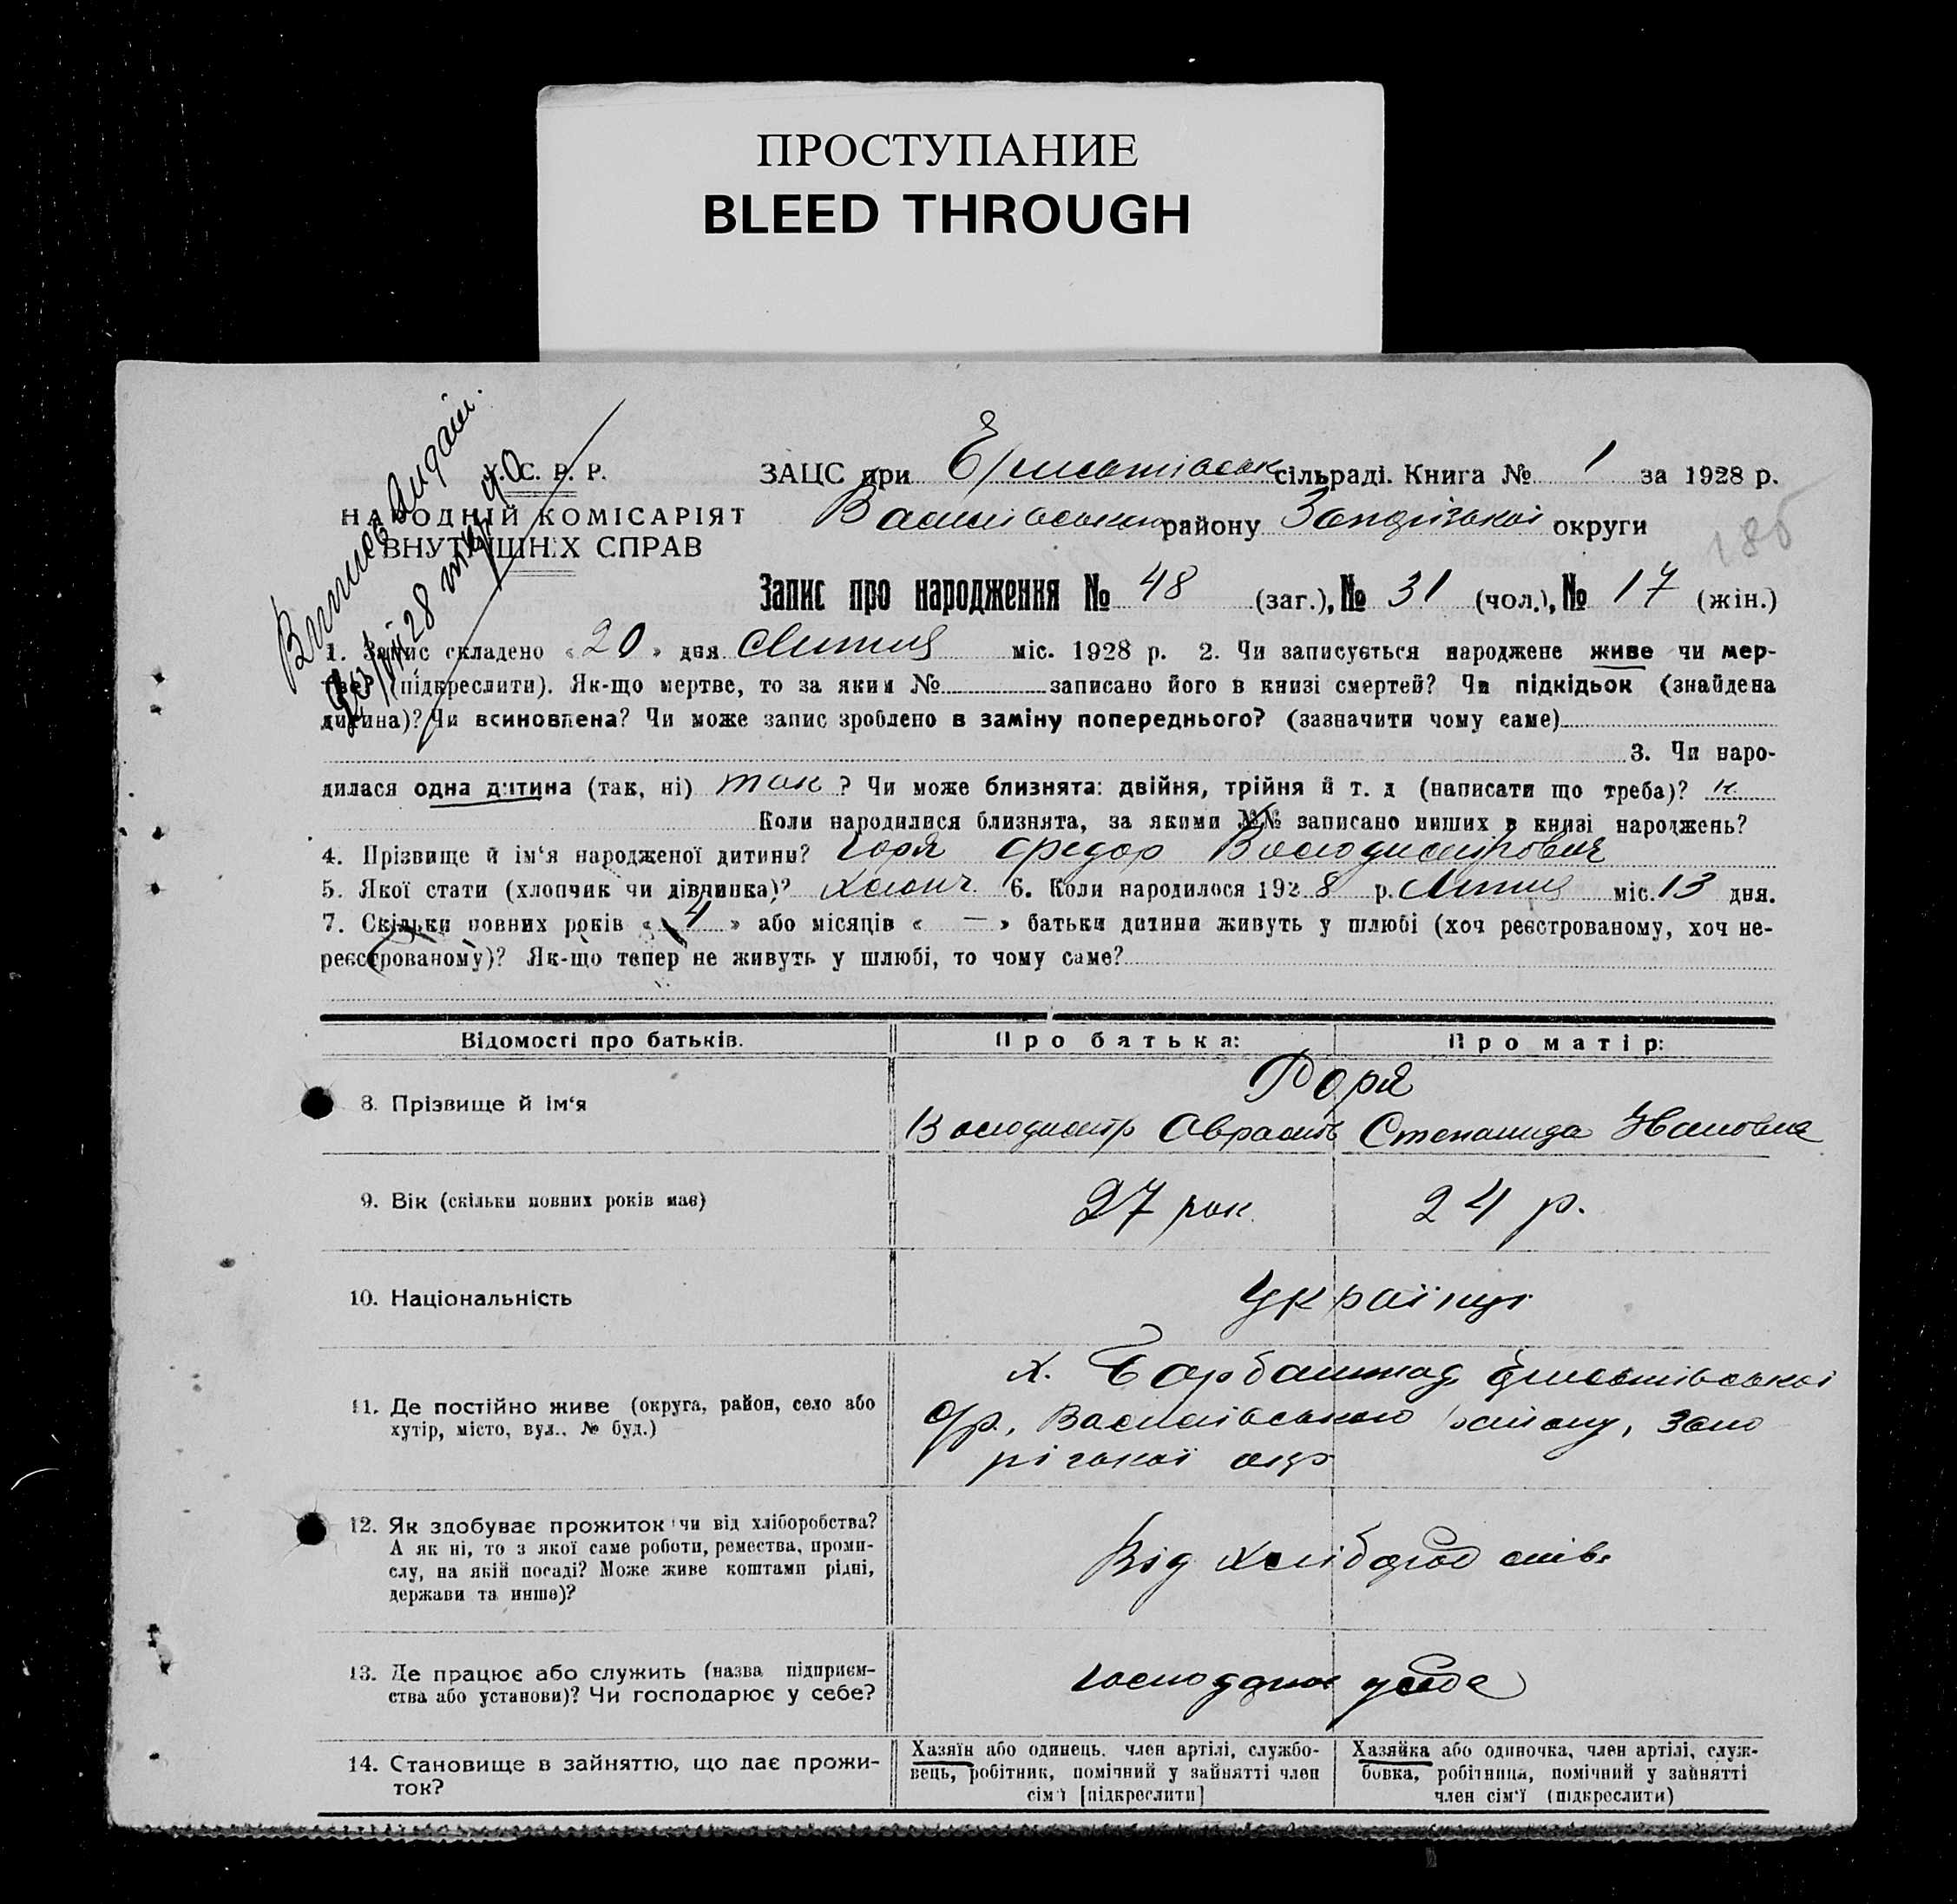 ПРОСТУПАНИЕ
BLEED THROUGH
У. С. Р. Р.
НАРОДНІЙ КОМІСАРІЯТ
ВНУТРІШНІХ СПРАВ
ЗАЦС при сільраді. Книга № 1 за 1928 р.
Василівського району Запорізької округи
186
Запис про народження № 48 (заг.), № 31 (чол.), № 17 (жін.)
1. Запис складено « 20 » дня міс. 1928 р. 2. Чи записується народжене живе чи мер-
тве? (підкреслити). Як-що мертве, то за яким № записано його в книзі смертей? Чи підкідьок (знайдена
дитина)? Чи всиновлена? Чи може запис зроблено в заміну попереднього? (зазначити чому саме)
3. Чи наро-
дилася одна дитина (так, ні) так ? Чи може близнята: двійня, трійня й т. д (написати що треба)? н
Коли народилися близнята, за якими №№ записано инших в книзі народжень?
4. Прізвище й ім'я народженої дитини? Горя Федор Володимирович
5. Якої стати (хлопчик чи дівчинка)? Хлопч. 6. Коли народилося 1928 р. міс. 13 дня.
7. Скільки повних років « 4 » або місяців « — » батьки дитини живуть у шлюбі (хоч реєстрованому, хоч не-
реєстрованому)? Як-що тепер не живуть у шлюбі, то чому саме?
Відомості про батьків.
Про батька:
Про матір:
8. Прізвище й ім'я
Горя
Володимир Аврамів Степанида Івановна
9. Вік (скільки повних років має)
27 рок.
24 р.
10. Національність
Українці
11. Де постійно живе (округа, район, село або
хутір, місто, вул., № буд.)
х.
с/р., Василівського району, Запо
різької окр
12. Як здобуває прожиток чи від хліборобства?
А як ні, то з якої саме роботи, ремества, проми-
слу, на якій посаді? Може живе коштами рідні,
держави та инше)?
Від хлібороб
13. Де працює або служить (назва підприєм-
ства або установи)? Чи господарює у себе?
господарює у себе
14. Становище в зайняттю, що дає прожи-
ток?
Хазяїн або одинець, член артілі, службо-
вець, робітник, помічний у зайнятті член
сім'ї [підкреслити]
Хазяйка або одиночка, член артілі, служ-
бовка, робітниця, помічний у зайнятті
член сім'ї (підкреслити)